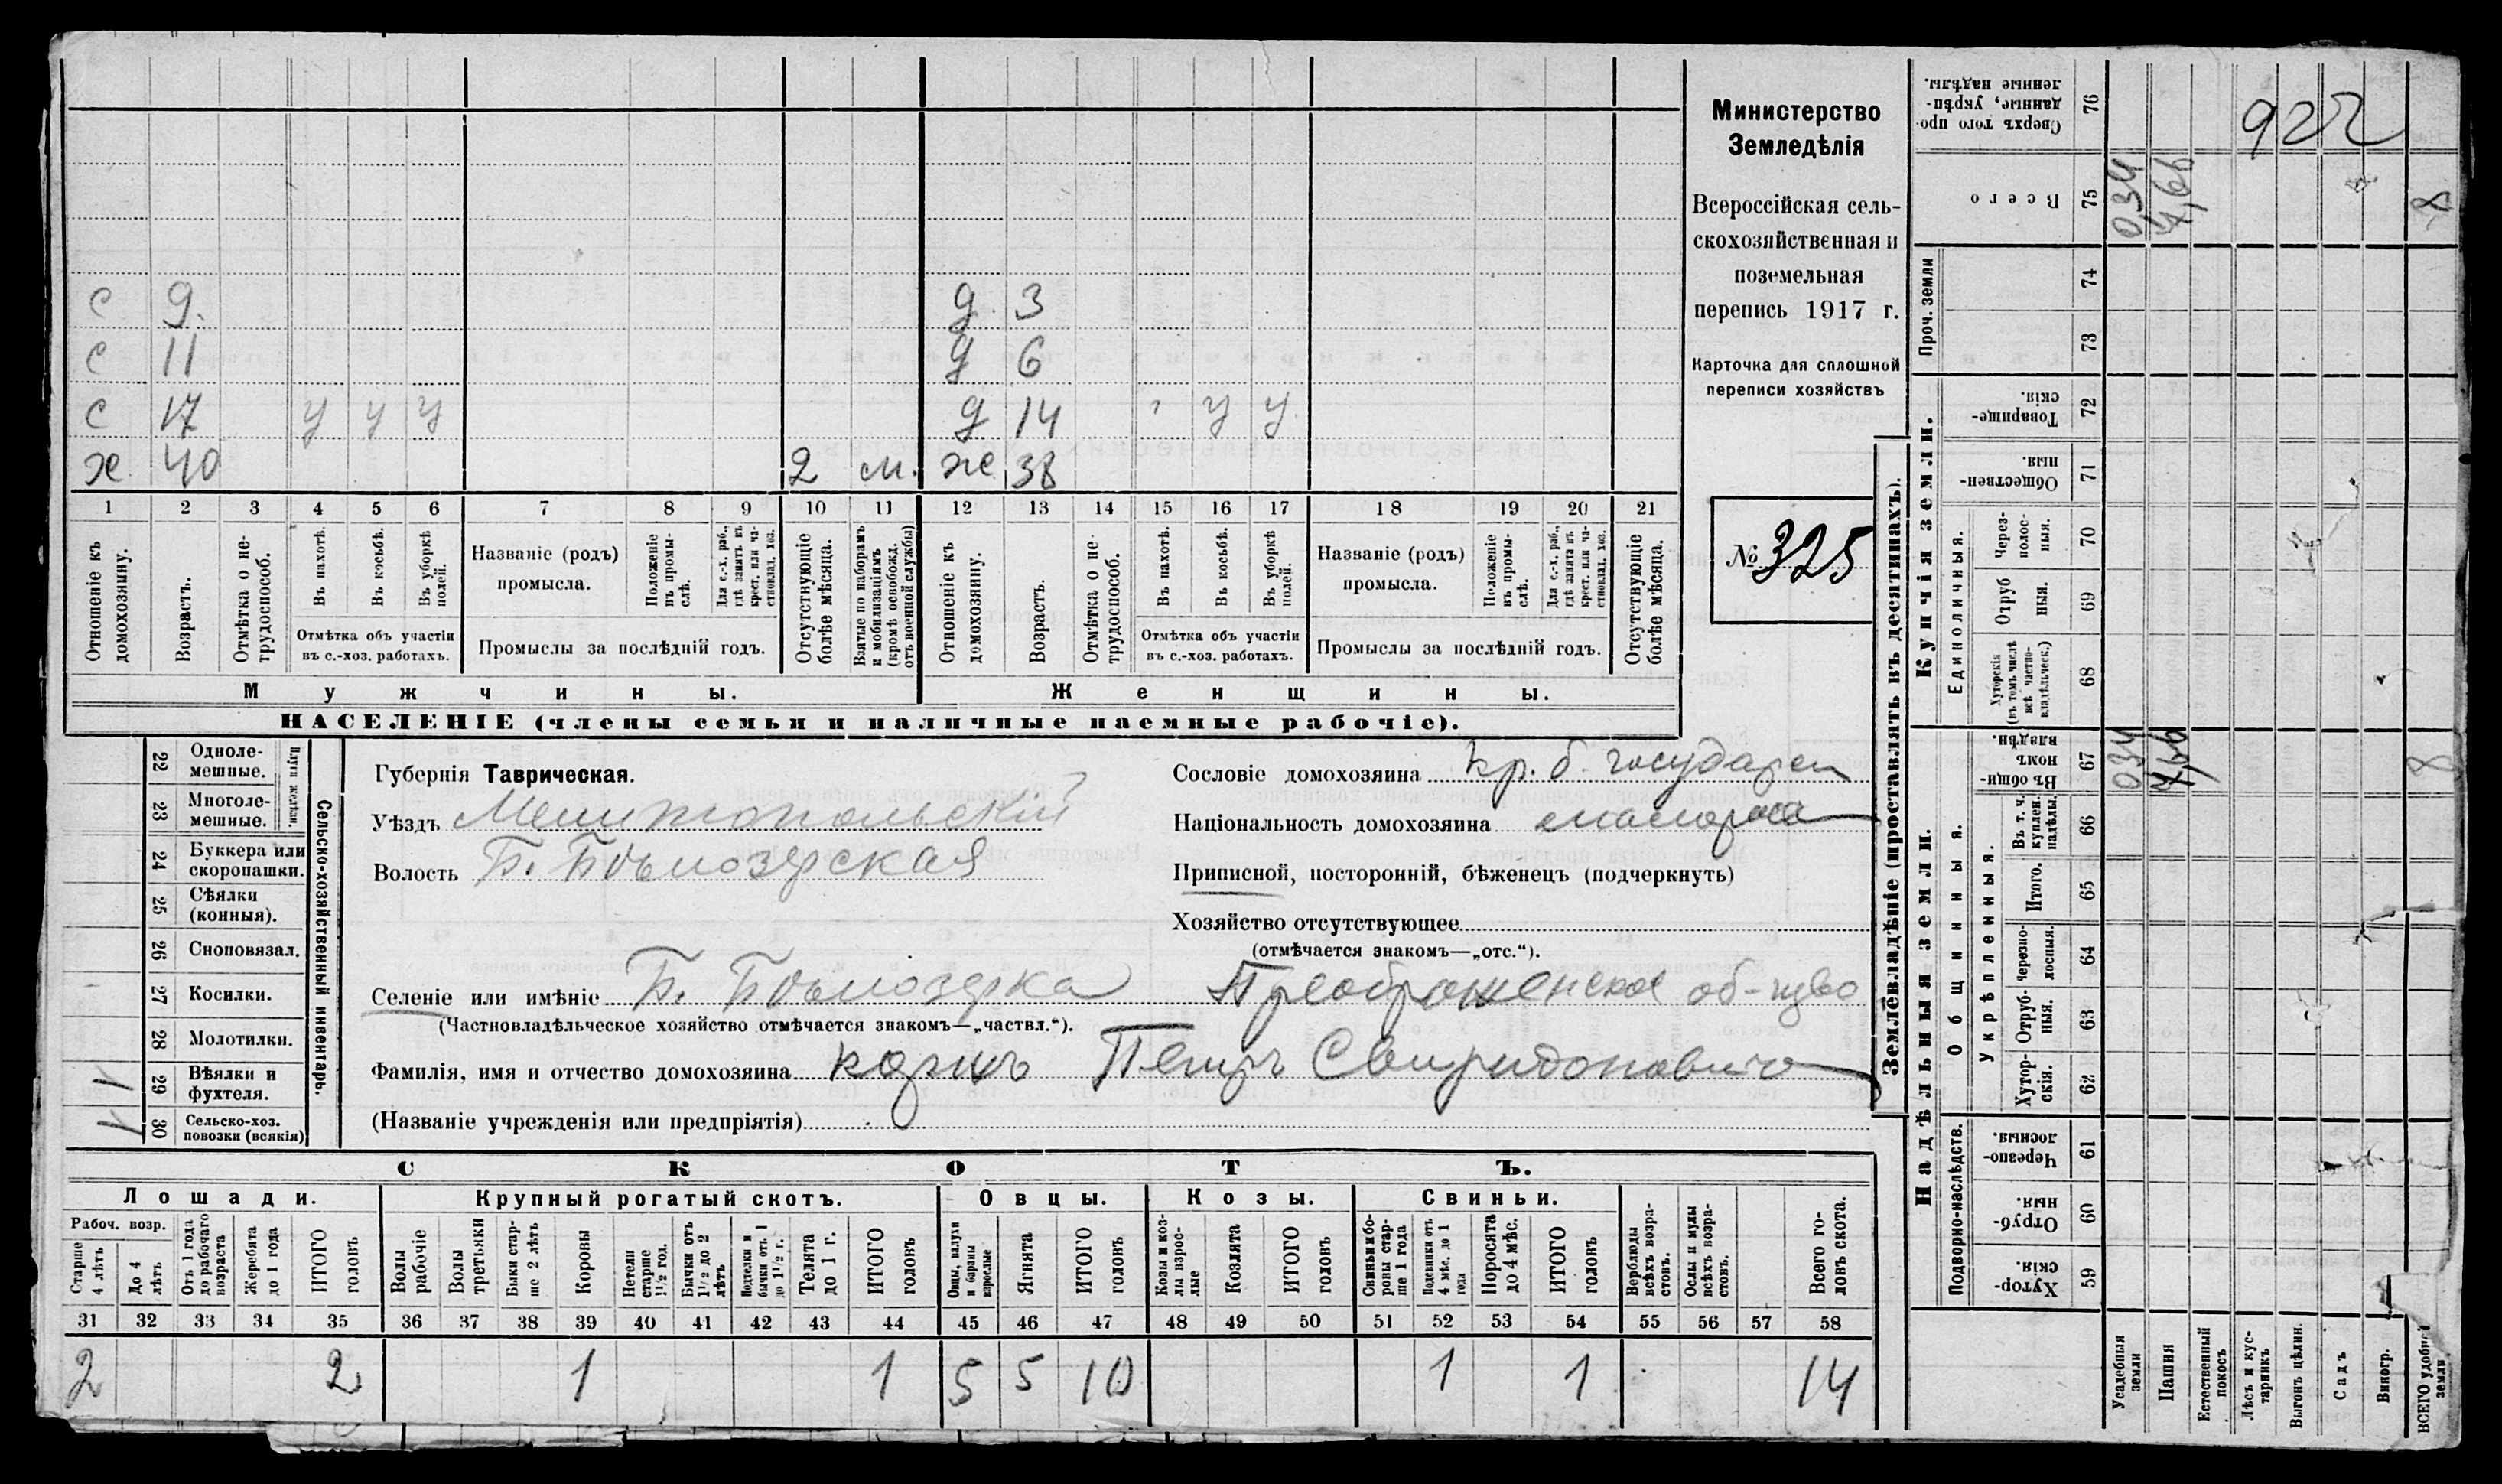 Министерство
Земледѣлія
Всероссійская сель-
скохозяйственная и
поземельная
перепись 1917 г.
Карточка для сплошной
переписи хозяйствъ
№ 325
с 9. д 3
с 11 д 6
с 17 у у у д 14 у у
х 40 2 м. ж 38
1 2 3 4 5 6 7 8 9 10 11 12 13 14 15 16 17 18 19 20 21
Отношеніе къ домохозяину.
Возрастъ.
Отмѣтка о не-трудоспособ.
Въ пахотѣ.
Въ косьбѣ.
Въ уборкѣ полей.
Отмѣтка объ участіи въ с.-хоз. работахъ.
Названіе (родъ) промысла.
Положеніе въ промы-слѣ.
Для с.-х. раб., гдѣ занятъ въ крест. или ча-стновлад. хоз.
Промыслы за послѣдній годъ.
Отсутствующіе болѣе мѣсяца.
Взятые по наборамъ и мобилизаціямъ (кромѣ освобожд. отъ военной службы)
Отношеніе къ домохозяину.
Возрастъ.
Отмѣтка о не-трудоспособ.
Въ пахотѣ.
Въ косьбѣ.
Въ уборкѣ полей.
Отмѣтка объ участіи въ с.-хоз. работахъ.
Названіе (родъ) промысла.
Положеніе въ промы-слѣ.
Для с.-х. раб., гдѣ занятъ въ крест. или ча-стновлад. хоз.
Промыслы за послѣдній годъ.
Отсутствующіе болѣе мѣсяца.
Мужчины. Женщины.
НАСЕЛЕНІЕ (члены семьи и наличные наемные рабочіе).
Сельско-хозяйственный инвентарь.
Плуги желѣзн.
22 Одноле-мешные.
23 Многоле-мешные.
24 Буккера или скоропашки.
25 Сѣялки (конныя).
26 Сноповязал.
27 Косилки.
28 Молотилки.
29 Вѣялки и фухтеля. 1
30 Сельско-хоз. повозки (всякія) 1
Губернія Таврическая.
Уѣздъ Мелитопольскій
Волость Б. Бѣлозерская
Сословіе домохозяина кр. б. государ
Національность домохозяина малоросс
Приписной, посторонній, бѣженецъ (подчеркнуть)
Хозяйство отсутствующее
(отмѣчается знакомъ—„отс.“).
Селеніе или имѣніе Б. Бѣлозерка Преображенское об-щво
(Частновладѣльческое хозяйство отмѣчается знакомъ—„частвл.“).
Фамилія, имя и отчество домохозяина Коржъ Петръ Свиридоновичъ
(Названіе учрежденія или предпріятія)
СКОТЪ.
Лошади. Крупный рогатый скотъ. Овцы. Козы. Свиньи.
Рабоч. возр.
Старше 4 лѣтъ
До 4 лѣтъ
Отъ 1 года до рабочаго возраста
Жеребята до 1 года
ИТОГО головъ
Волы рабочіе
Волы третьяки
Быки стар-ше 2 лѣтъ
Коровы
Нетели старше 1½ год.
Бычки отъ 1½ до 2 лѣтъ
Подтелки и бычки отъ 1 до 1½ г.
Телята до 1 г.
ИТОГО головъ
Овцы, валухи и бараны взрослые
Ягнята
ИТОГО головъ
Козы и коз-лы взрос-лые
Козлята
ИТОГО головъ
Свиньи и бо-ровы стар-ше 1 года
Подсвинки отъ 4 мѣс. до 1 года
Поросята до 4 мѣс.
ИТОГО головъ
Верблюды всѣхъ возра-стовъ.
Ослы и мулы всѣхъ возра-стовъ.
Всего го-ловъ скота.
31 32 33 34 35 36 37 38 39 40 41 42 43 44 45 46 47 48 49 50 51 52 53 54 55 56 57 58
2 2 1 1 5 5 10 1 1 14
Землевладѣніе (проставлять въ десятинахъ).
Надѣльныя земли. Купчія земли. Проч. земли
Подворно-наслѣдств.
59 Хутор-скія.
60 Отруб-ныя.
61 Черезпо-лосныя.
Общинныя.
Укрѣпленныя.
62 Хутор-скія.
63 Отруб-ныя.
64 Черезпо-лосныя.
65 Итого.
66 Въ т. ч. куплен. надѣлы.
67 Въ общин-номъ владѣн. 034 7,66 8
Единоличныя.
68 Хуторскія (въ томъ числѣ всѣ частно-владѣльческ.)
69 Отруб ныя.
70 Через-полос-ныя.
71 Обществен-ныя.
72 Товарище-скія.
73
74
75 Всего 034 7,66 8
76 Сверхъ того про-данные, укрѣп-ленные надѣлы.
922
Усадебныя земли
Пашня
Естественный покосъ
Лѣсъ и кус-тарникъ
Выгонъ цѣлин.
Садъ
Виногр.
ВСЕГО удобной земли